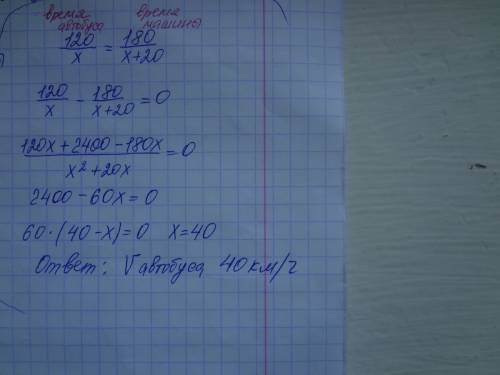 время время
автобуса машины
120/x = 180/x+20
120/x - 180/x+20 = 0
120x+2400-180x/x²+20x = 0
2400-60x=0
60·(40-x)=0 x=40
Ответ: V автобуса 40км/ч